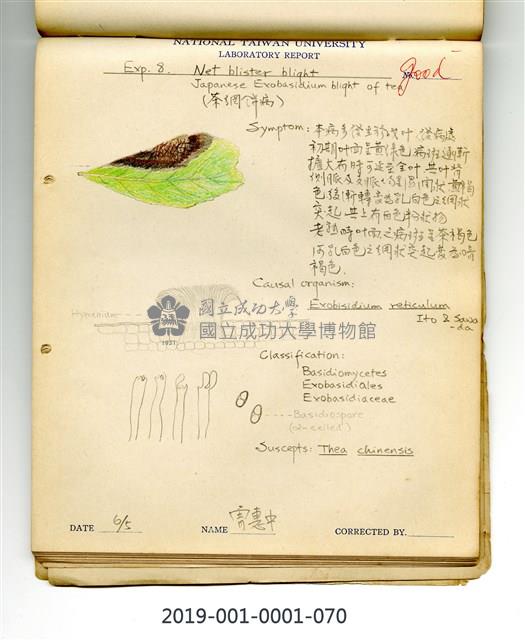 NATIONAL TAIWAN UNIVERSITY
LABORATORY REPORT
Exp. 8. Net blister blight
good
Japanese Exobasidium blight of tea
(茶網餅病)
Symptom: 本病多發生於成叶,從病感
初期叶面呈黄綠色病斑逐漸
擴大有時可達至全叶 其叶背
側脈及支脈
色後漸轉
突起 其上有白色粉狀物
老熟時叶面之病斑呈茶褐色
而乳白色之網狀突起變為暗
褐色.
Causal organism:
Exobisidium reticulum
Ito & Sawa
-da
Hymenium
國立成功大學
國立成功大學博物館
1931
Classification:
Basidiomycetes
Exobasidiales
Exobasidiaceae
Basidiospore
(2-celled)
Suscepts: Thea chinensis
DATE 6/5
NAME
CORRECTED BY.
2019-001-0001-070